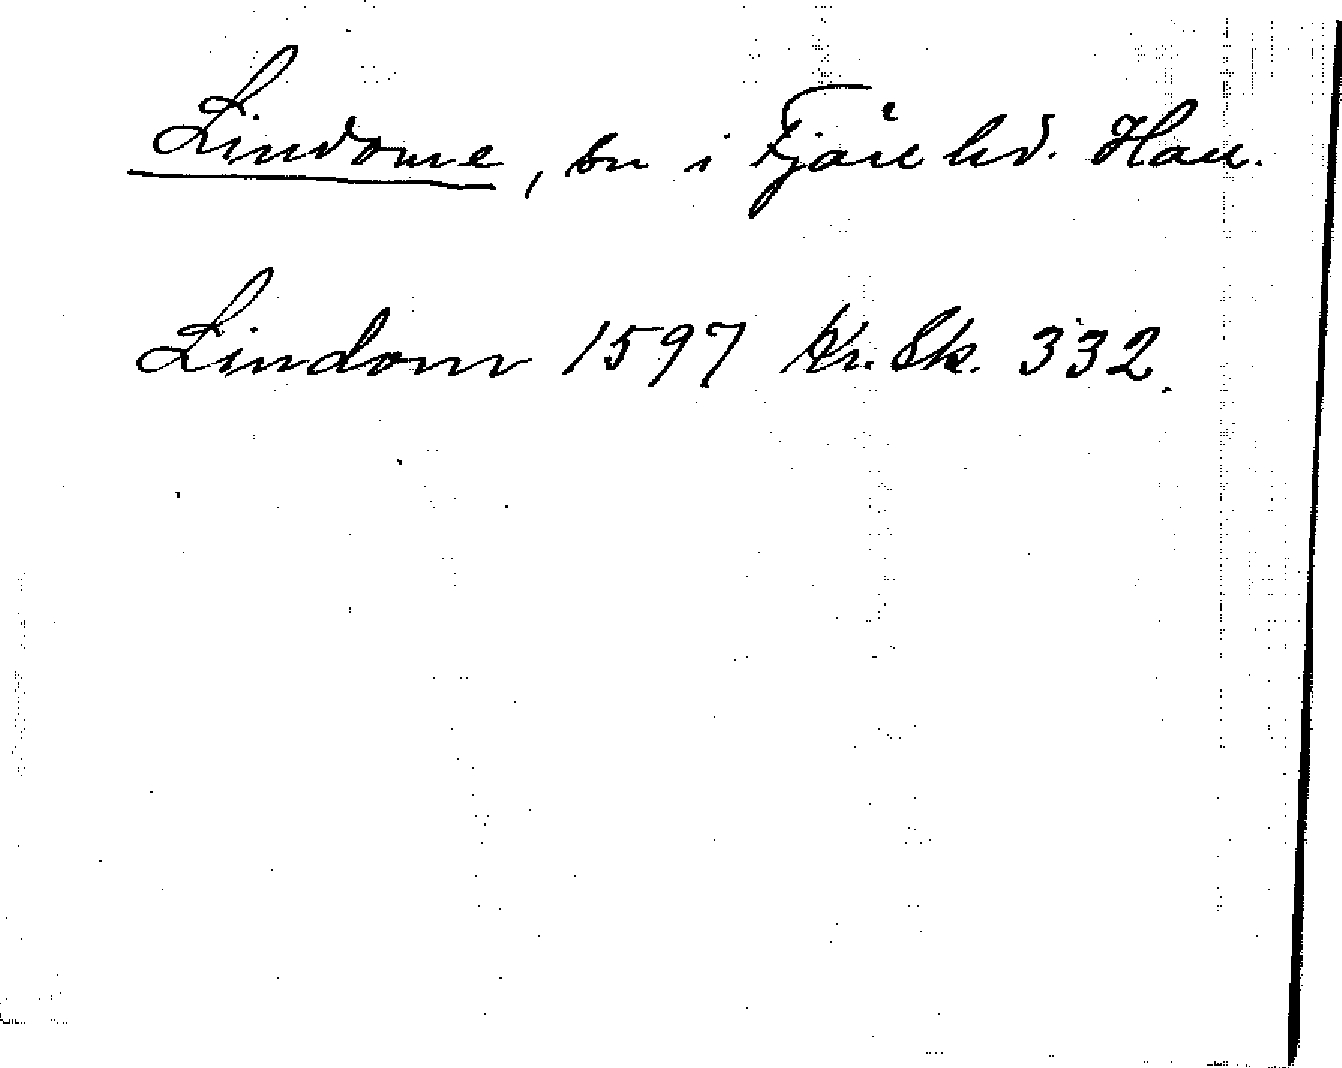 Lindome, sn i Fjäre hd. Hall.
Lindom 1597 Kr. Sk. 332.